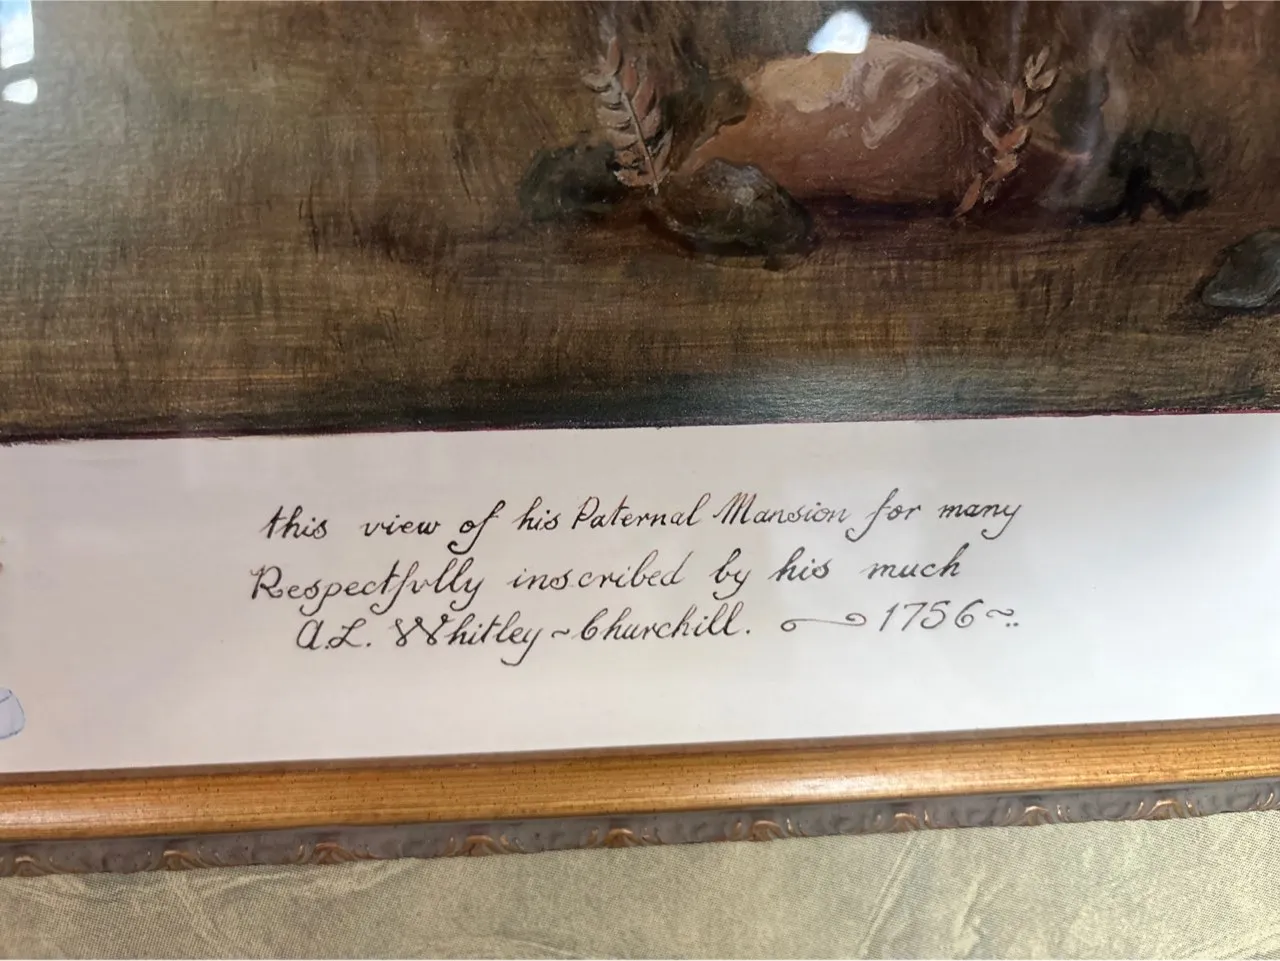 this view of his Paternal Mansion for many
Respectfully inscribed by his much
A.L. Whitley ~ Churchill. 1756 ~